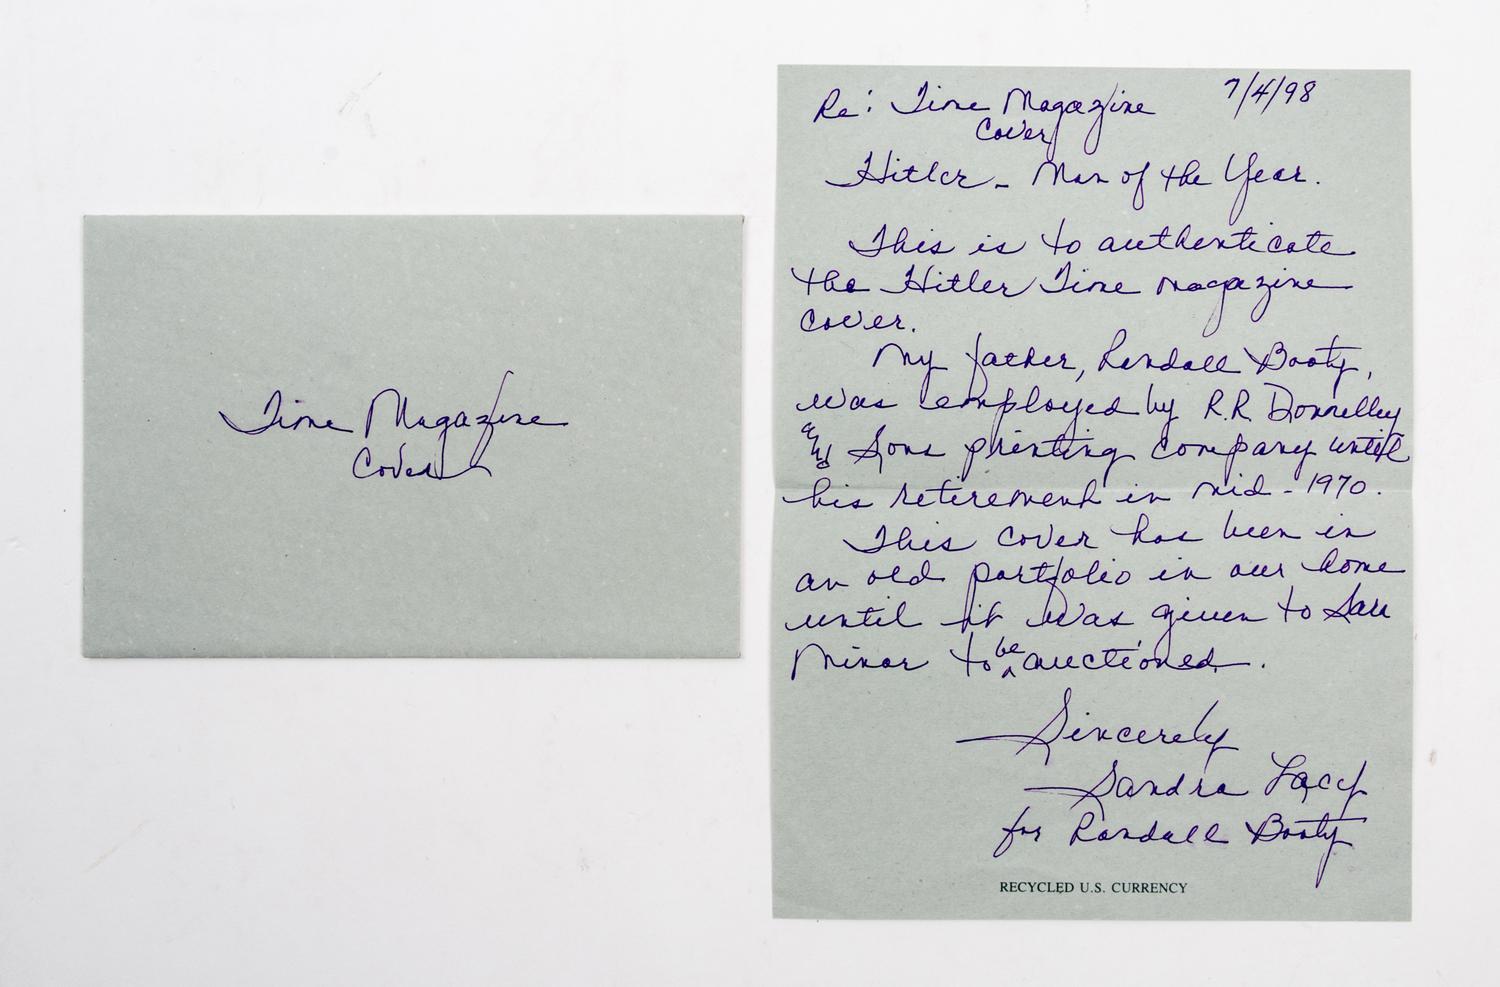 Time Magazine
Cover
Re: Time Magazine 7/4/98
Cover
Hitler - Man of the Year.
This is to authenticate
the Hitler Time magazine
cover.
My father, Randall Booty,
was employed by R.R. Donnelley
and Sons printing company until
his retirement in mid-1970.
This cover has been in
an old portfolio in our home
until it was given to Sam
Minor to be auctioned.
Sincerely
Sandra Lacy
for Randall Booty
RECYCLED U.S. CURRENCY